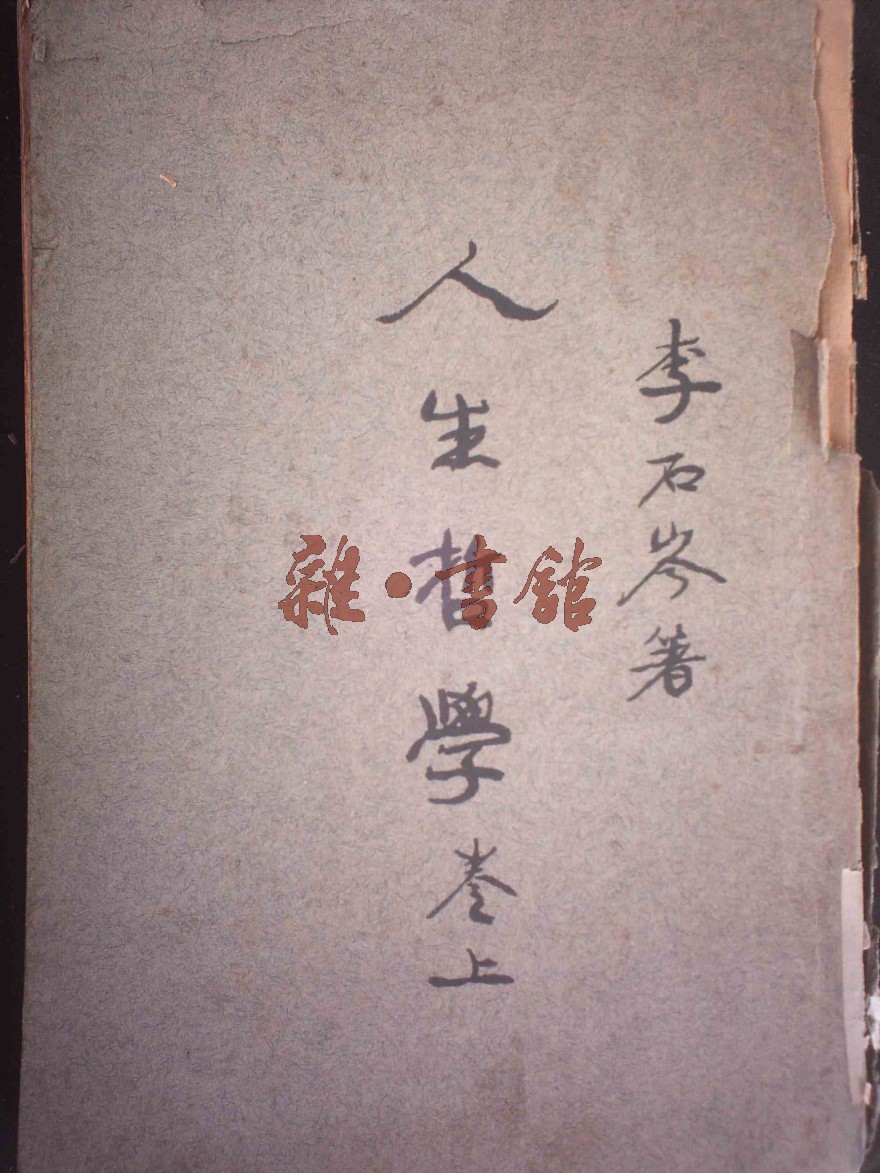 李石岑著
人生哲學卷上
雜·書館